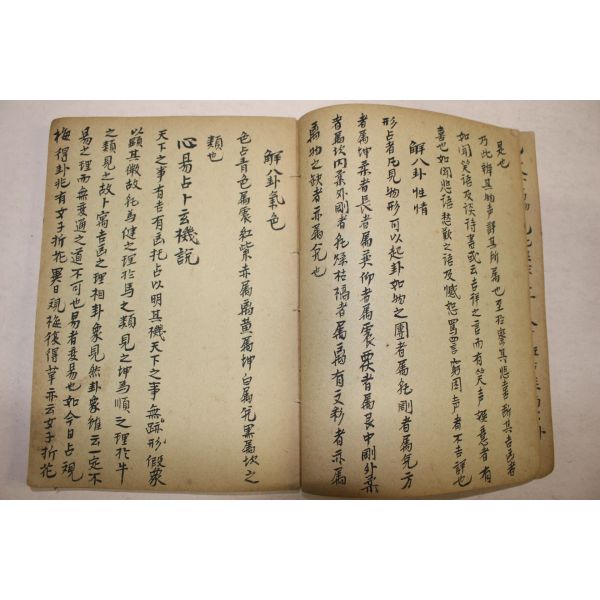 是也
乃此辨其物声詳其所属也至於察其悲喜断其吉凶者
如聞笑語及談诗書或云吉祥之言而有笑声 意者有
喜也如聞悲语愁歎之语及憾怨罵詈窮困声者不吉詳也
解八卦性情
形占者凡見物形可以起卦如物之團者属乾剛者属兊方
者属坤柔者長者属巽仰者属震覆者属艮中剛外柔
者属坎内柔外剛者乾燥枯槁者属离有文彩者亦属
离物之缺者亦属兊也
解八卦氣色
色占青色属震紅紫赤属离黄属坤白属兊黑属坎之
類也
心易占卜玄機說
天下之事有吉有凶托占以明其機天下之事無跡形假象
以顕其 故乾馬健之理於馬之類見之坤為順之理於牛
之類見之故卜寓吉凶之理相卦象見然卦象雖云一定不
易之理而無变通之道不可也易者变易也如今日占观
梅得卦兆有女子折花異日观梅復得革亦云女子折花